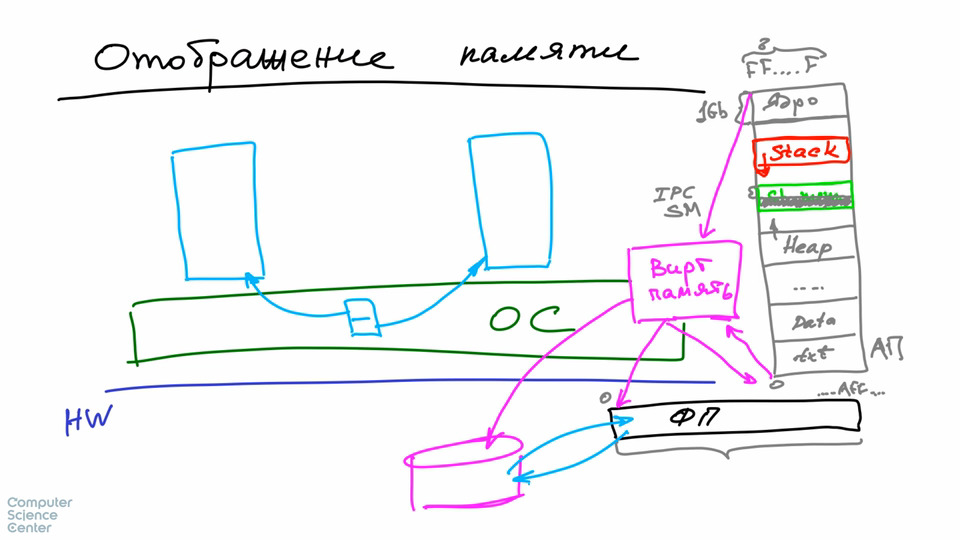 Отображение памяти
8
FF....F
1Gb
Ядро
Stack
IPC
SM
Heap
....
Data
txt
АП
Вирт
память
ОС
HW
0
0
....AFF...
ФП
Computer
Science
Center